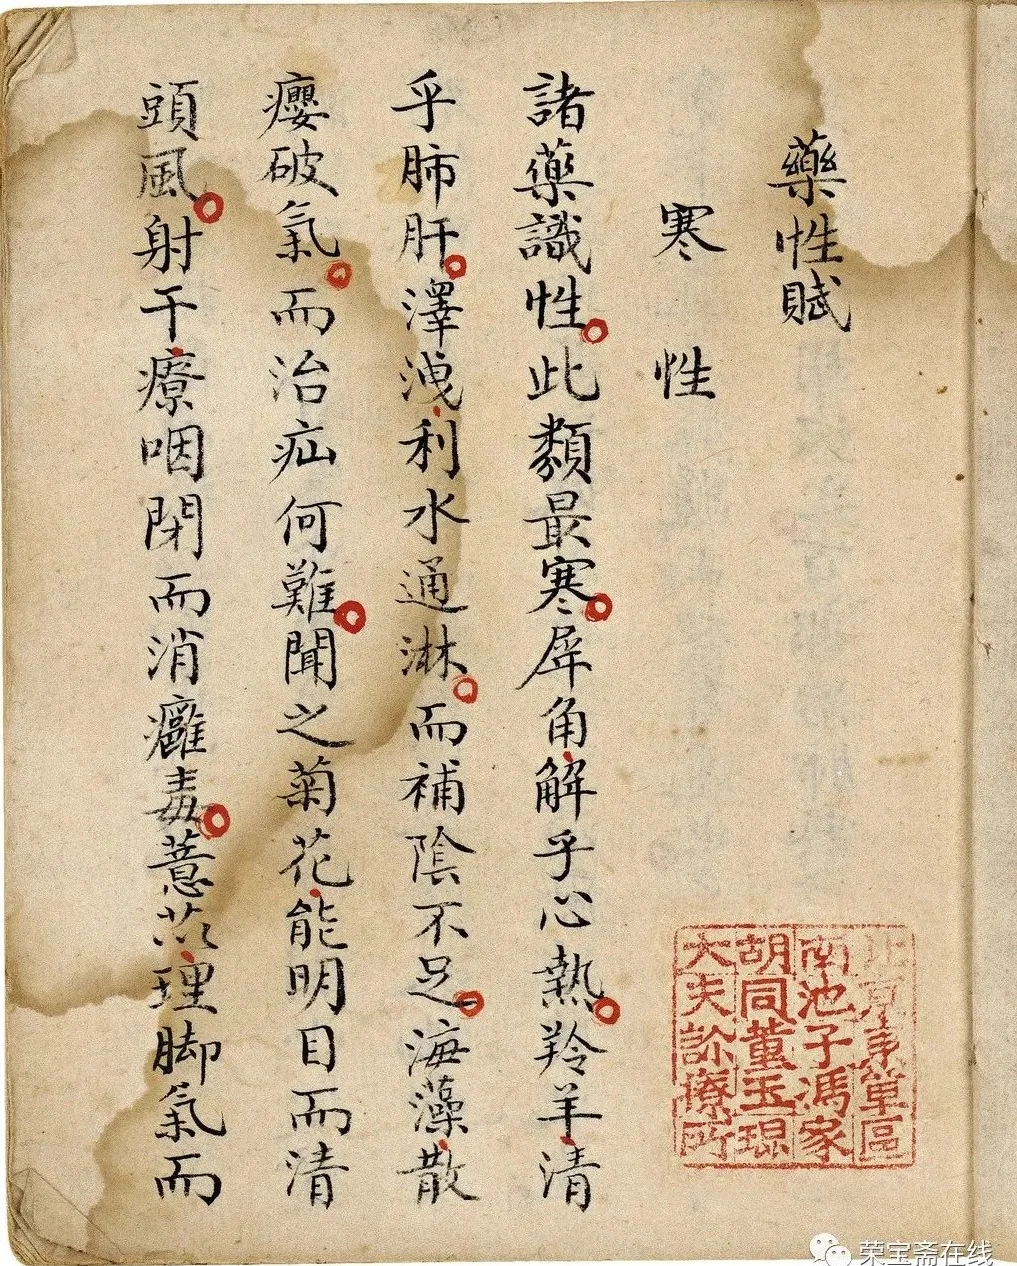 藥性賦
寒性
諸藥識性此類最寒犀角解乎心熱羚羊清
乎肺肝澤洩利水通淋而補陰不足海藻散
癭破氣而治疝何難聞之菊花能明目而清
頭風射干療咽閉而消癰毒薏苡理脚氣而
北京東單區
南池子馮家
胡同董玉琨
大夫診療所
荣宝斋在线